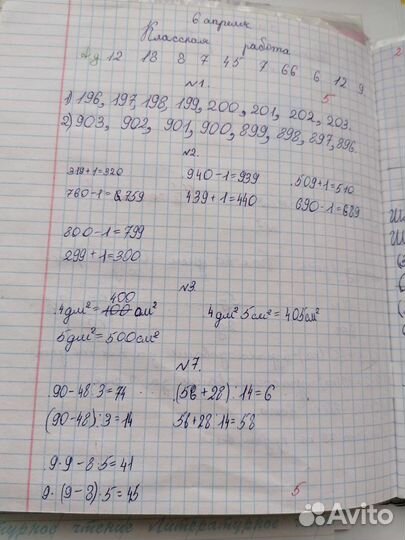 6 апреля
Классная работа
12 18 8 7 45 7 66 6 12 9
№1.
5
1) 196, 197, 198, 199, 200, 201, 202, 203.
2) 903, 902, 901, 900, 899, 898, 897, 896.
№2.
319+1=320 940-1=939 509+1=510
760-1=759 439+1=440 690-1=689
800-1=799
299+1=300
№3.
400
4дм²=100см² 4дм² 5см²=405см²
5дм²=500см²
№7.
90-48:3=74 (56+28):14=6
(90-48):3=14 56+28:14=58
9·9-8·5=41
9·(9-8)·5=45
5
Литературное чтение Литературное
Avito